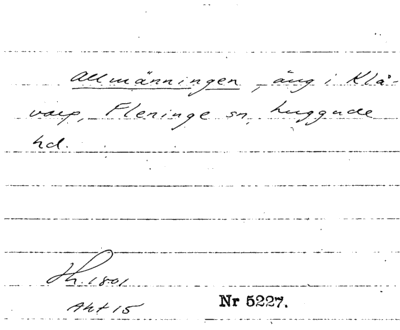 Allmänningen, äng i Klå-
varp, Fleninge sn, Luggude
hd.
Sk. 1801
Akt 15 Nr 5227.